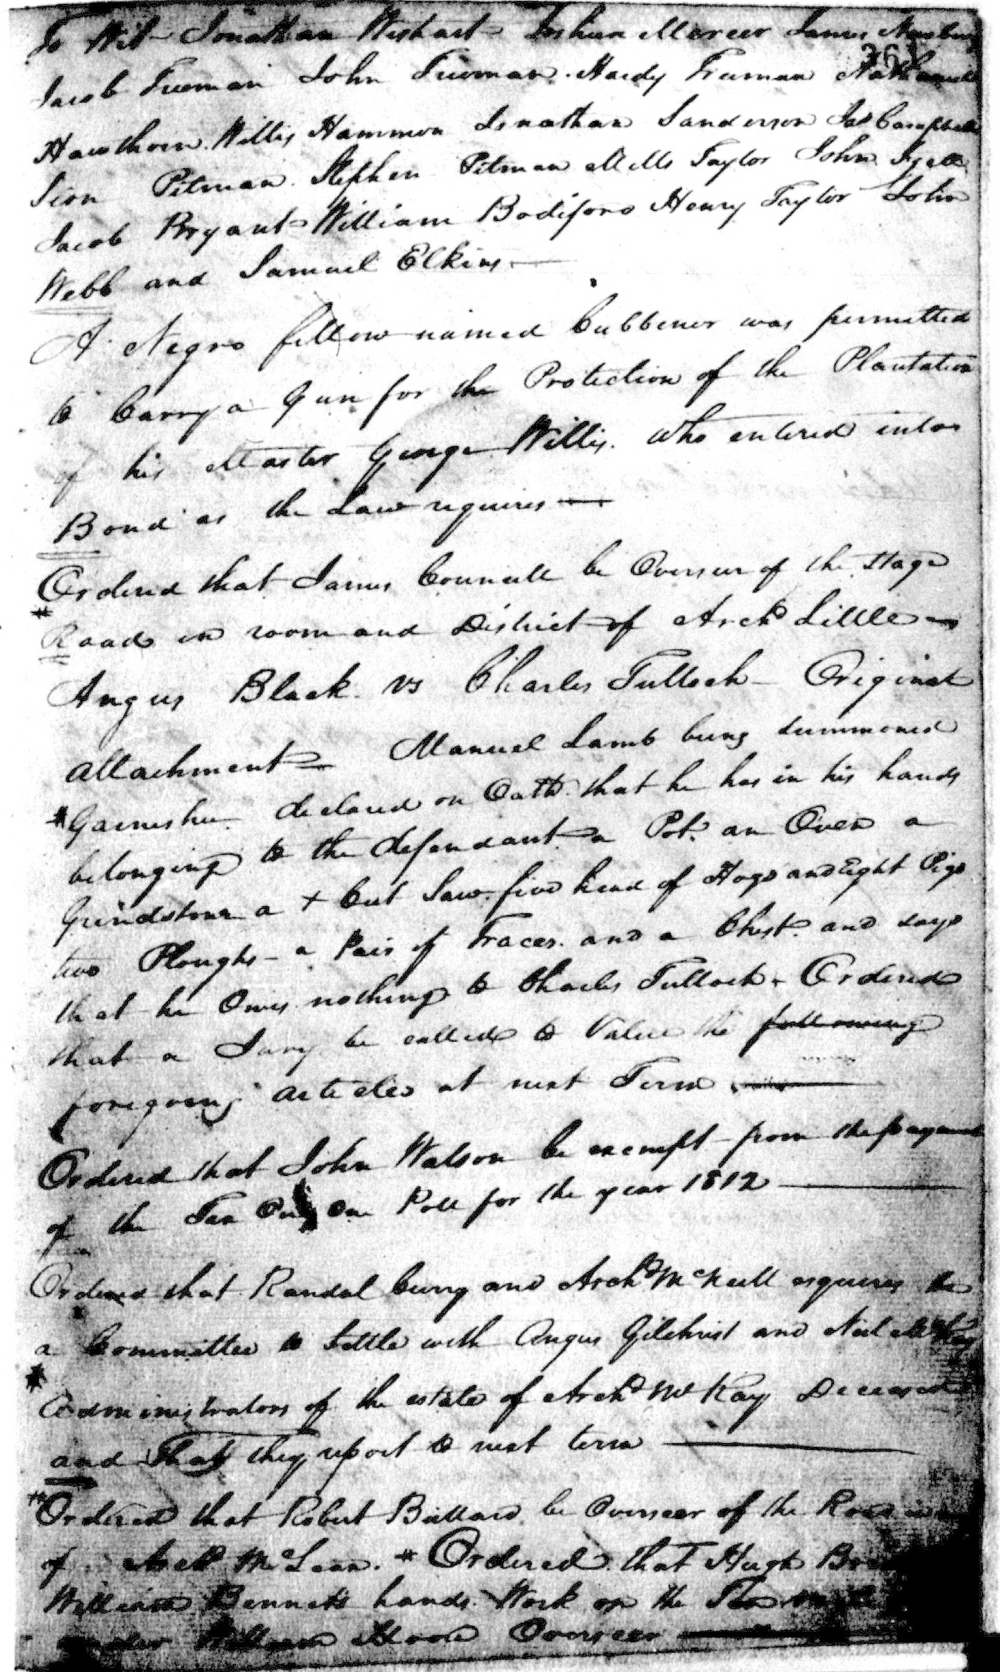 To Wit Jonathan Wishart Joshua Mercer James Musselw
361
Jacob Freeman John Freeman Hardy Freeman Nathaniel
Hawthorn Willis Hammon Jonathan Sanderson Jas Campbell
Sion Pitman Stephen Pitman Mills Taylor John
Jacob Bryant William Bodiford Henry Taylor John
Webb and Samuel Elkins
A Negro fellow named Cubbener was permitted
to Carry a Gun for the Protection of the Plantation
of his Master George Willis who entered into
Bond as the Law requires
Ordered that James Councill be Overseer of the Stage
Road in room and District of Archd Little
Angus Black vs Charles Tulloch Original
attachment Manuel Lamb being summoned
Garneshee declared on Oath that he has in his hands
belonging to the defendant a Pot an Oven a
Grindstone a + Cut Saw five head of Hogs and Eight Pigs
two Ploughs a Pair of Traces and a Chest and says
that he Owes nothing to Charles Tulloch Ordered
that a Jury be called to Value the following
foregoing articles at next Term
Ordered that John Watson be exempt from the payment
of the Tax On One Poll for the year 1812
Ordered that Randal Curry and Archd McNeill esquires be
a Committee to Settle with Angus Gilchrist and Neil McKay
Administrators of the estate of Archd McKay Deceased
and That they report to next term
Ordered that Robert Bullard be Overseer of the Road in
of Archd McLean. # Ordered that Hugh
William Bennett hands Work on the
under William Moore Overseer